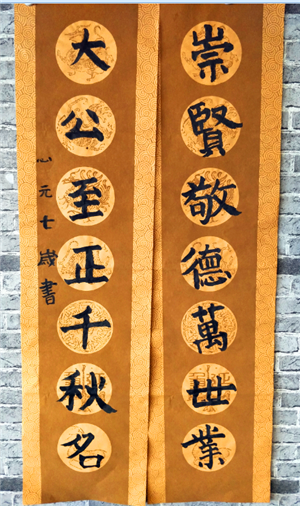 崇賢敬德萬世業
大公至正千秋名
心元七歲書